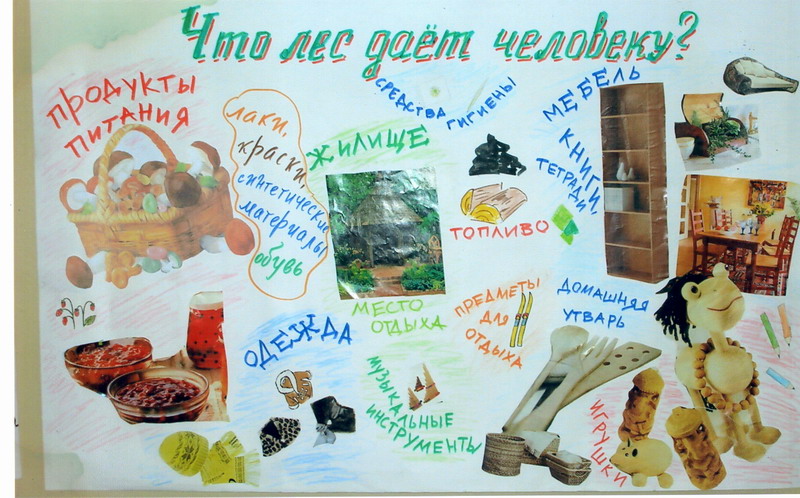 Что лес даёт человеку?
ПРОДУКТЫ
ПИТАНИЯ
лаки,
краски,
синтетические
материалы
обувь
ЖИЛИЩЕ
СРЕДСТВА
ГИГИЕНЫ
МЕБЕЛЬ
КНИГИ,
ТЕТРАДИ
ТОПЛИВО
МЕСТО
ОТДЫХА
ПРЕДМЕТЫ
ДЛЯ
ОТДЫХА
ДОМАШНЯЯ
УТВАРЬ
ОДЕЖДА
МУЗЫКАЛЬНЫЕ
ИНСТРУМЕНТЫ
ИГРУШКИ